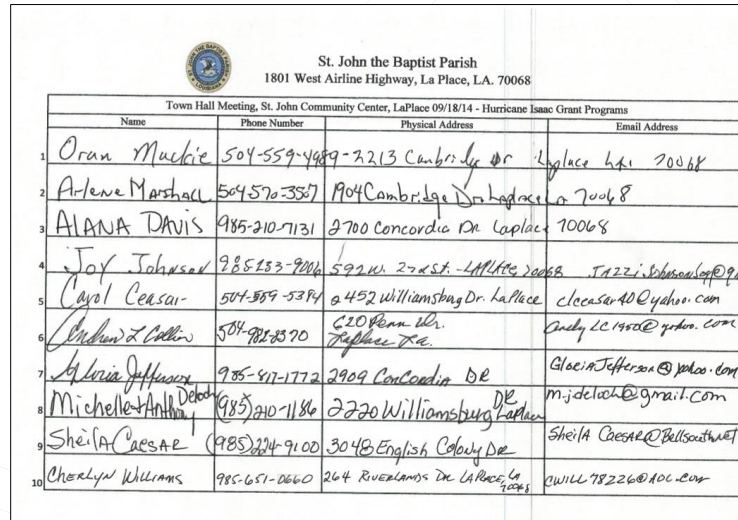 St. John the Baptist Parish
1801 West Airline Highway, La Place, LA. 70068
Town Hall Meeting, St. John Community Center, LaPlace 09/18/14 - Hurricane Isaac Grant Programs
Name Phone Number Physical Address Email Address
1 Oran Mackie 504-559-4989 - 2213 Cambridge Dr Laplace 70068
2 Arlene Marshall 504-570-3507 1904 Cambridge Dr Laplace La 70068
3 ALANA DAVIS 985-210-7131 2700 Concordia DR Laplace 70068
4 Joy Johnson 592 W. 2nd St. - LAPLACE, 70068
5 Carol Ceasar 504-559-5394 2452 Williamsburg Dr. LaPlace cleeasar40@yahoo.com
6 Andrew L Collin 504-982-8370 620 Penn Dr.
Laplace La.
7 Gloria Jefferson 985-817-1772 2909 ConCordia DR GloriAJefferson@yahoo.com
8 Michelle & Anthony Deloch (985)210-1186 2220 Williamsburg DR Laplace m.j.deloch@gmail.com
9 SheilA CAESAR (985)224-9100 3048 English Colony DR SheilA CAESAR@Bellsouth.net
10 CHERLYN WILLIAMS 985-651-0660 264 RIVERLANDS DR LAPLACE, LA 70068 CWILL78226@AOL.COM